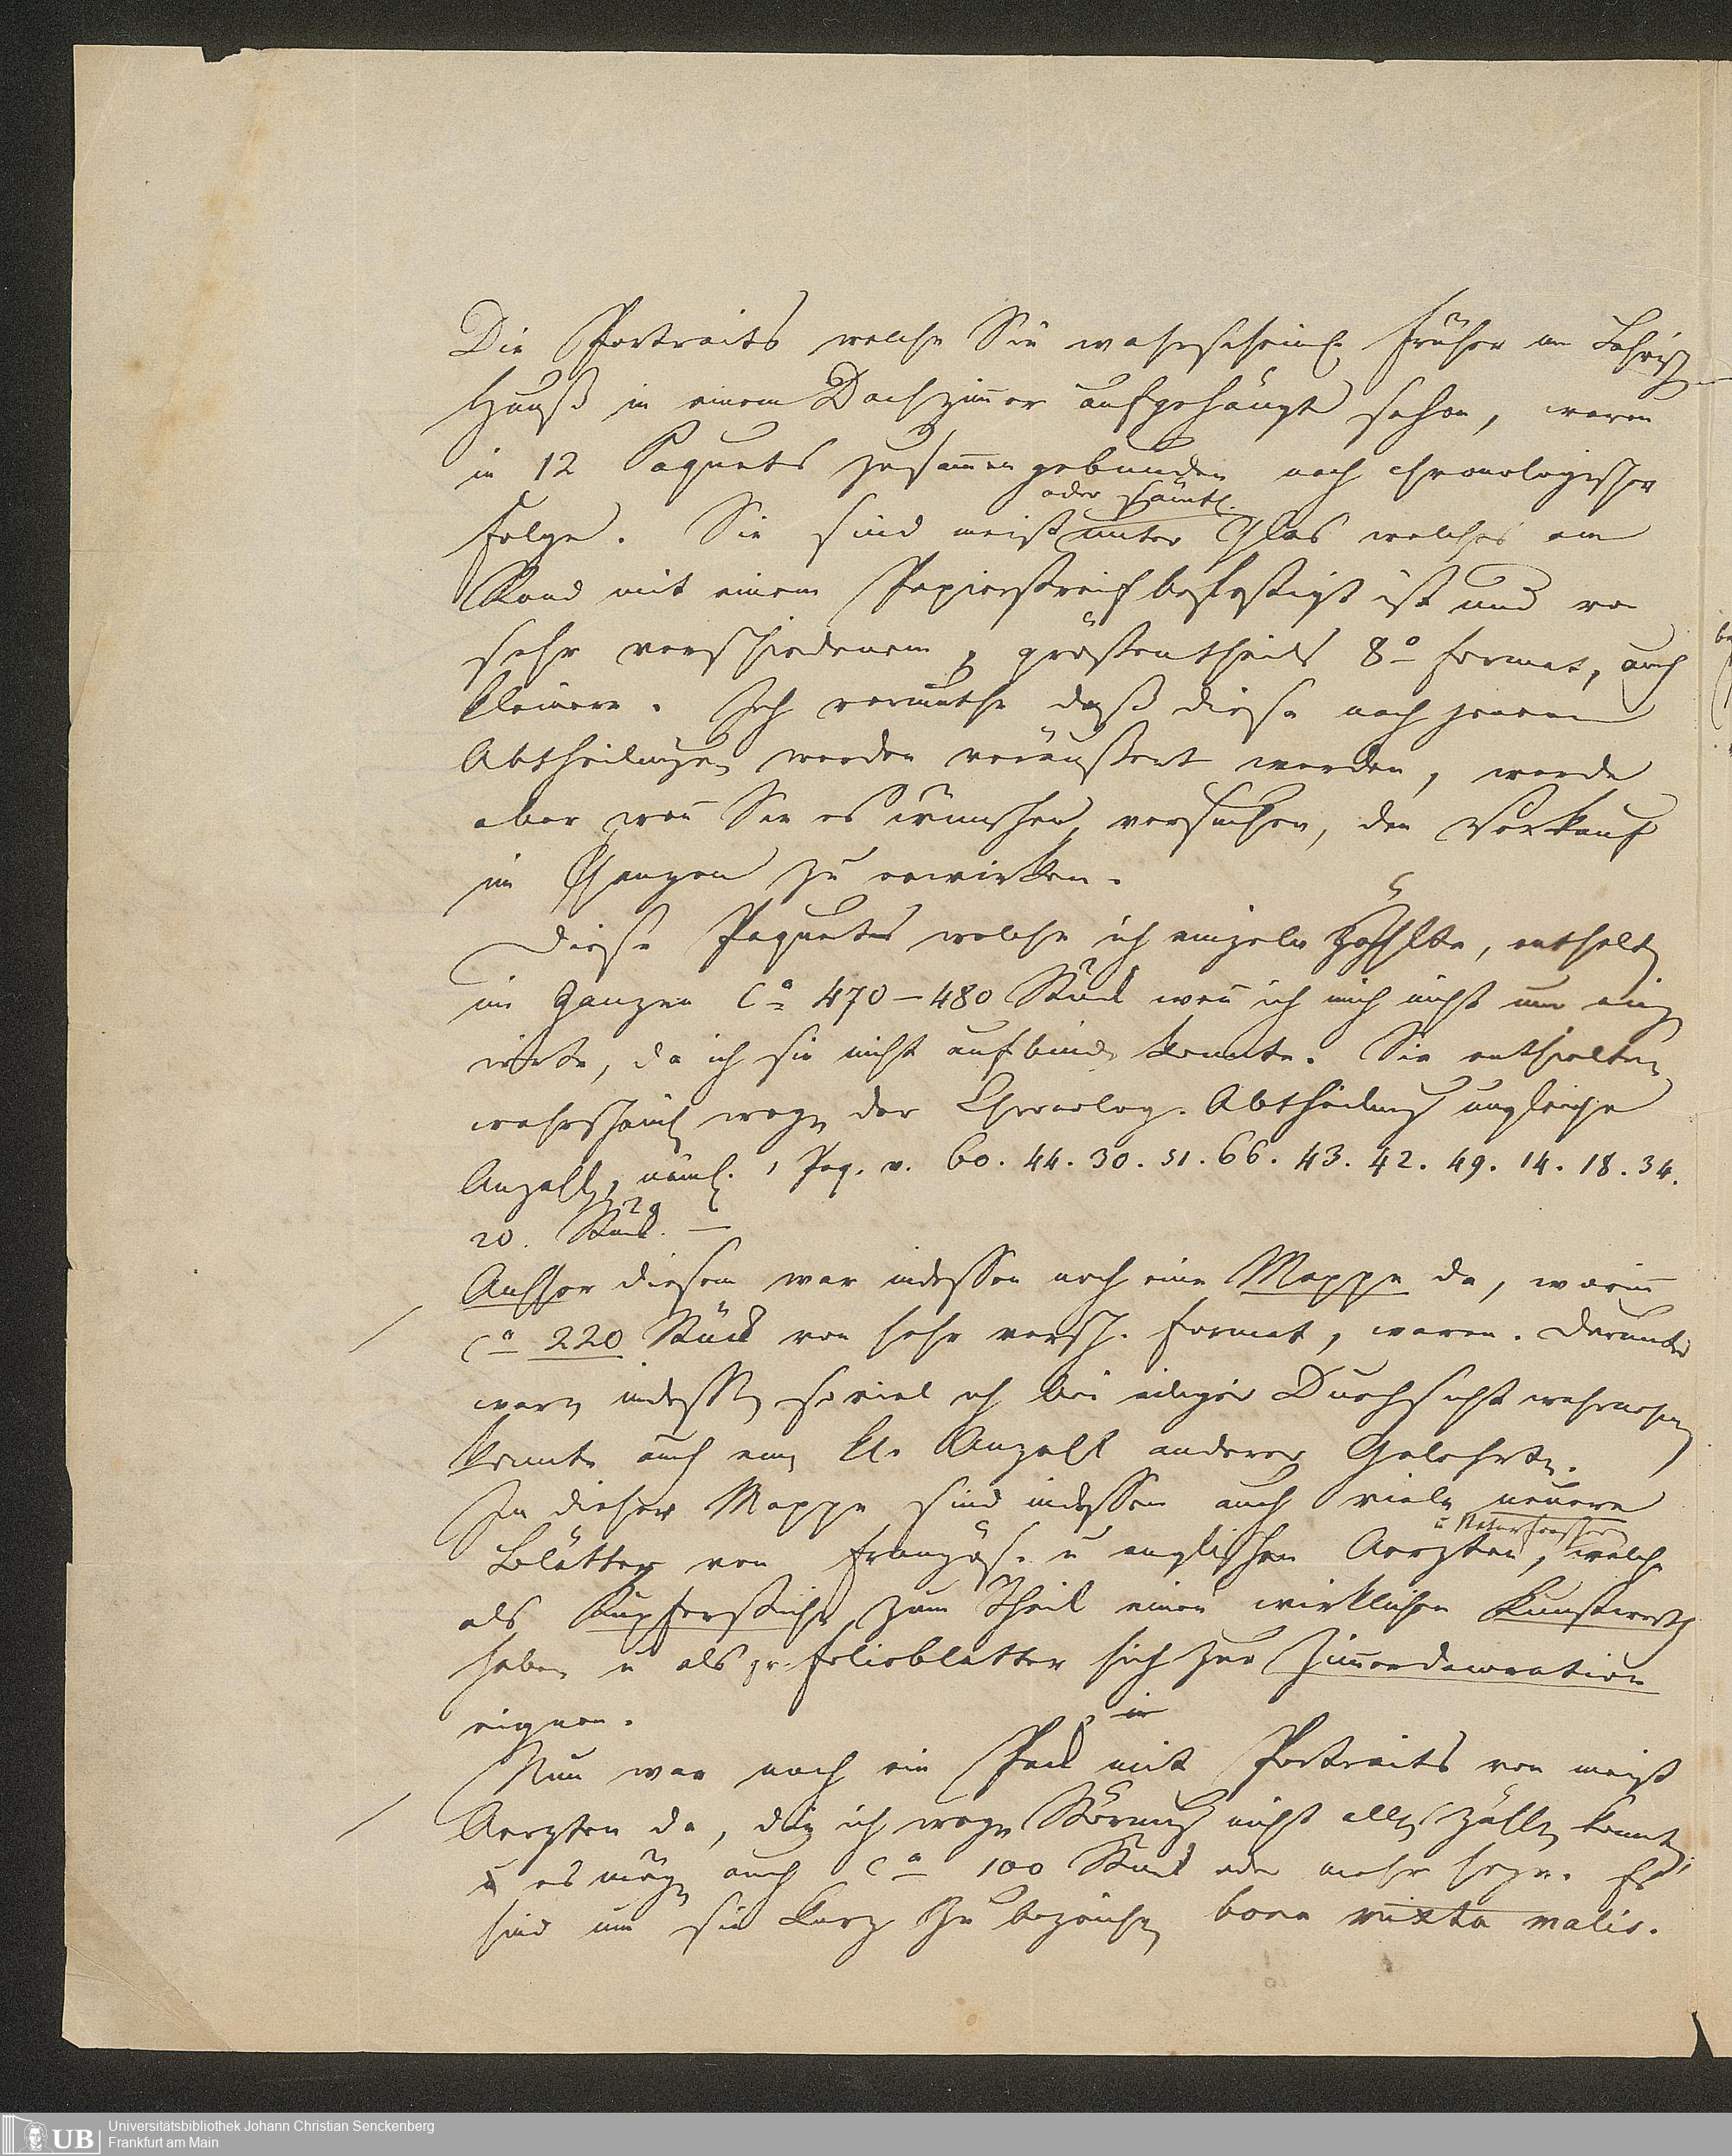 Die Portraits welche Sie wahrscheinl. früher im
Hauß in einem Dachzimer aufgehängt sahen, waren
in 12 Paquets zusamen gebunden nach chronologischer
oder sämtl.
Folge. Sie sind meist unter Glas welches am
Rand mit einem Papierstreif befestigt ist und von
sehr verschiedenem, größtentheils 8o Format, auch
kleinere. Ich vermuthe daß diese nach jenen
Abtheilungen werden veräußert werden, werde
aber wen Sie es wünschen versuchen, den Verkauf
im Ganzen zu erwirken.
Diese Paquets welche ich einzeln zählte, enthalten
im Ganzen Ca 470-480 Stück wen ich mich nicht um einige
irrte, da ich sie nicht aufbinden konnte. Sie enthielten
wahrscheinl. wegen der Chronolog. Abtheilung ungleiche
Anzahl, näml. 1 Paq. v. 60. 44. 30. 51. 66. 43. 42. 49. 14. 18. 34.
20. Stück. —
Ausser diesem war indessen noch eine Mappe da, worin
Ca 220 Stück von sehr versch. Format, waren. Darunter
waren indessen soviel ich bei einiger Durchsicht wahrnehmen
konnte auch eine kl. Anzahl anderer Gelehrten.
In dieser Mappe sind indessen auch viele neuere
u Naturforschern
Blätter von Französ. u englischen Aerzten, welche
als Kupferstiche zum Theil einen wirklichen Kunstwerth
haben u als gr. Folioblätter sich zur Zimerdecoration
eignen.
Nun war noch ein Pack mit Portraits von meist
Aerzten da, die ich wegen Störung nicht alle zählen konnte,
es mögen auch Ca 100 Stück oder mehr seyn. Es
sind um sie kurz zu bezeichnen bona mixta malis.
Universitätsbibliothek Johann Christian Senckenberg
Frankfurt am Main
UB